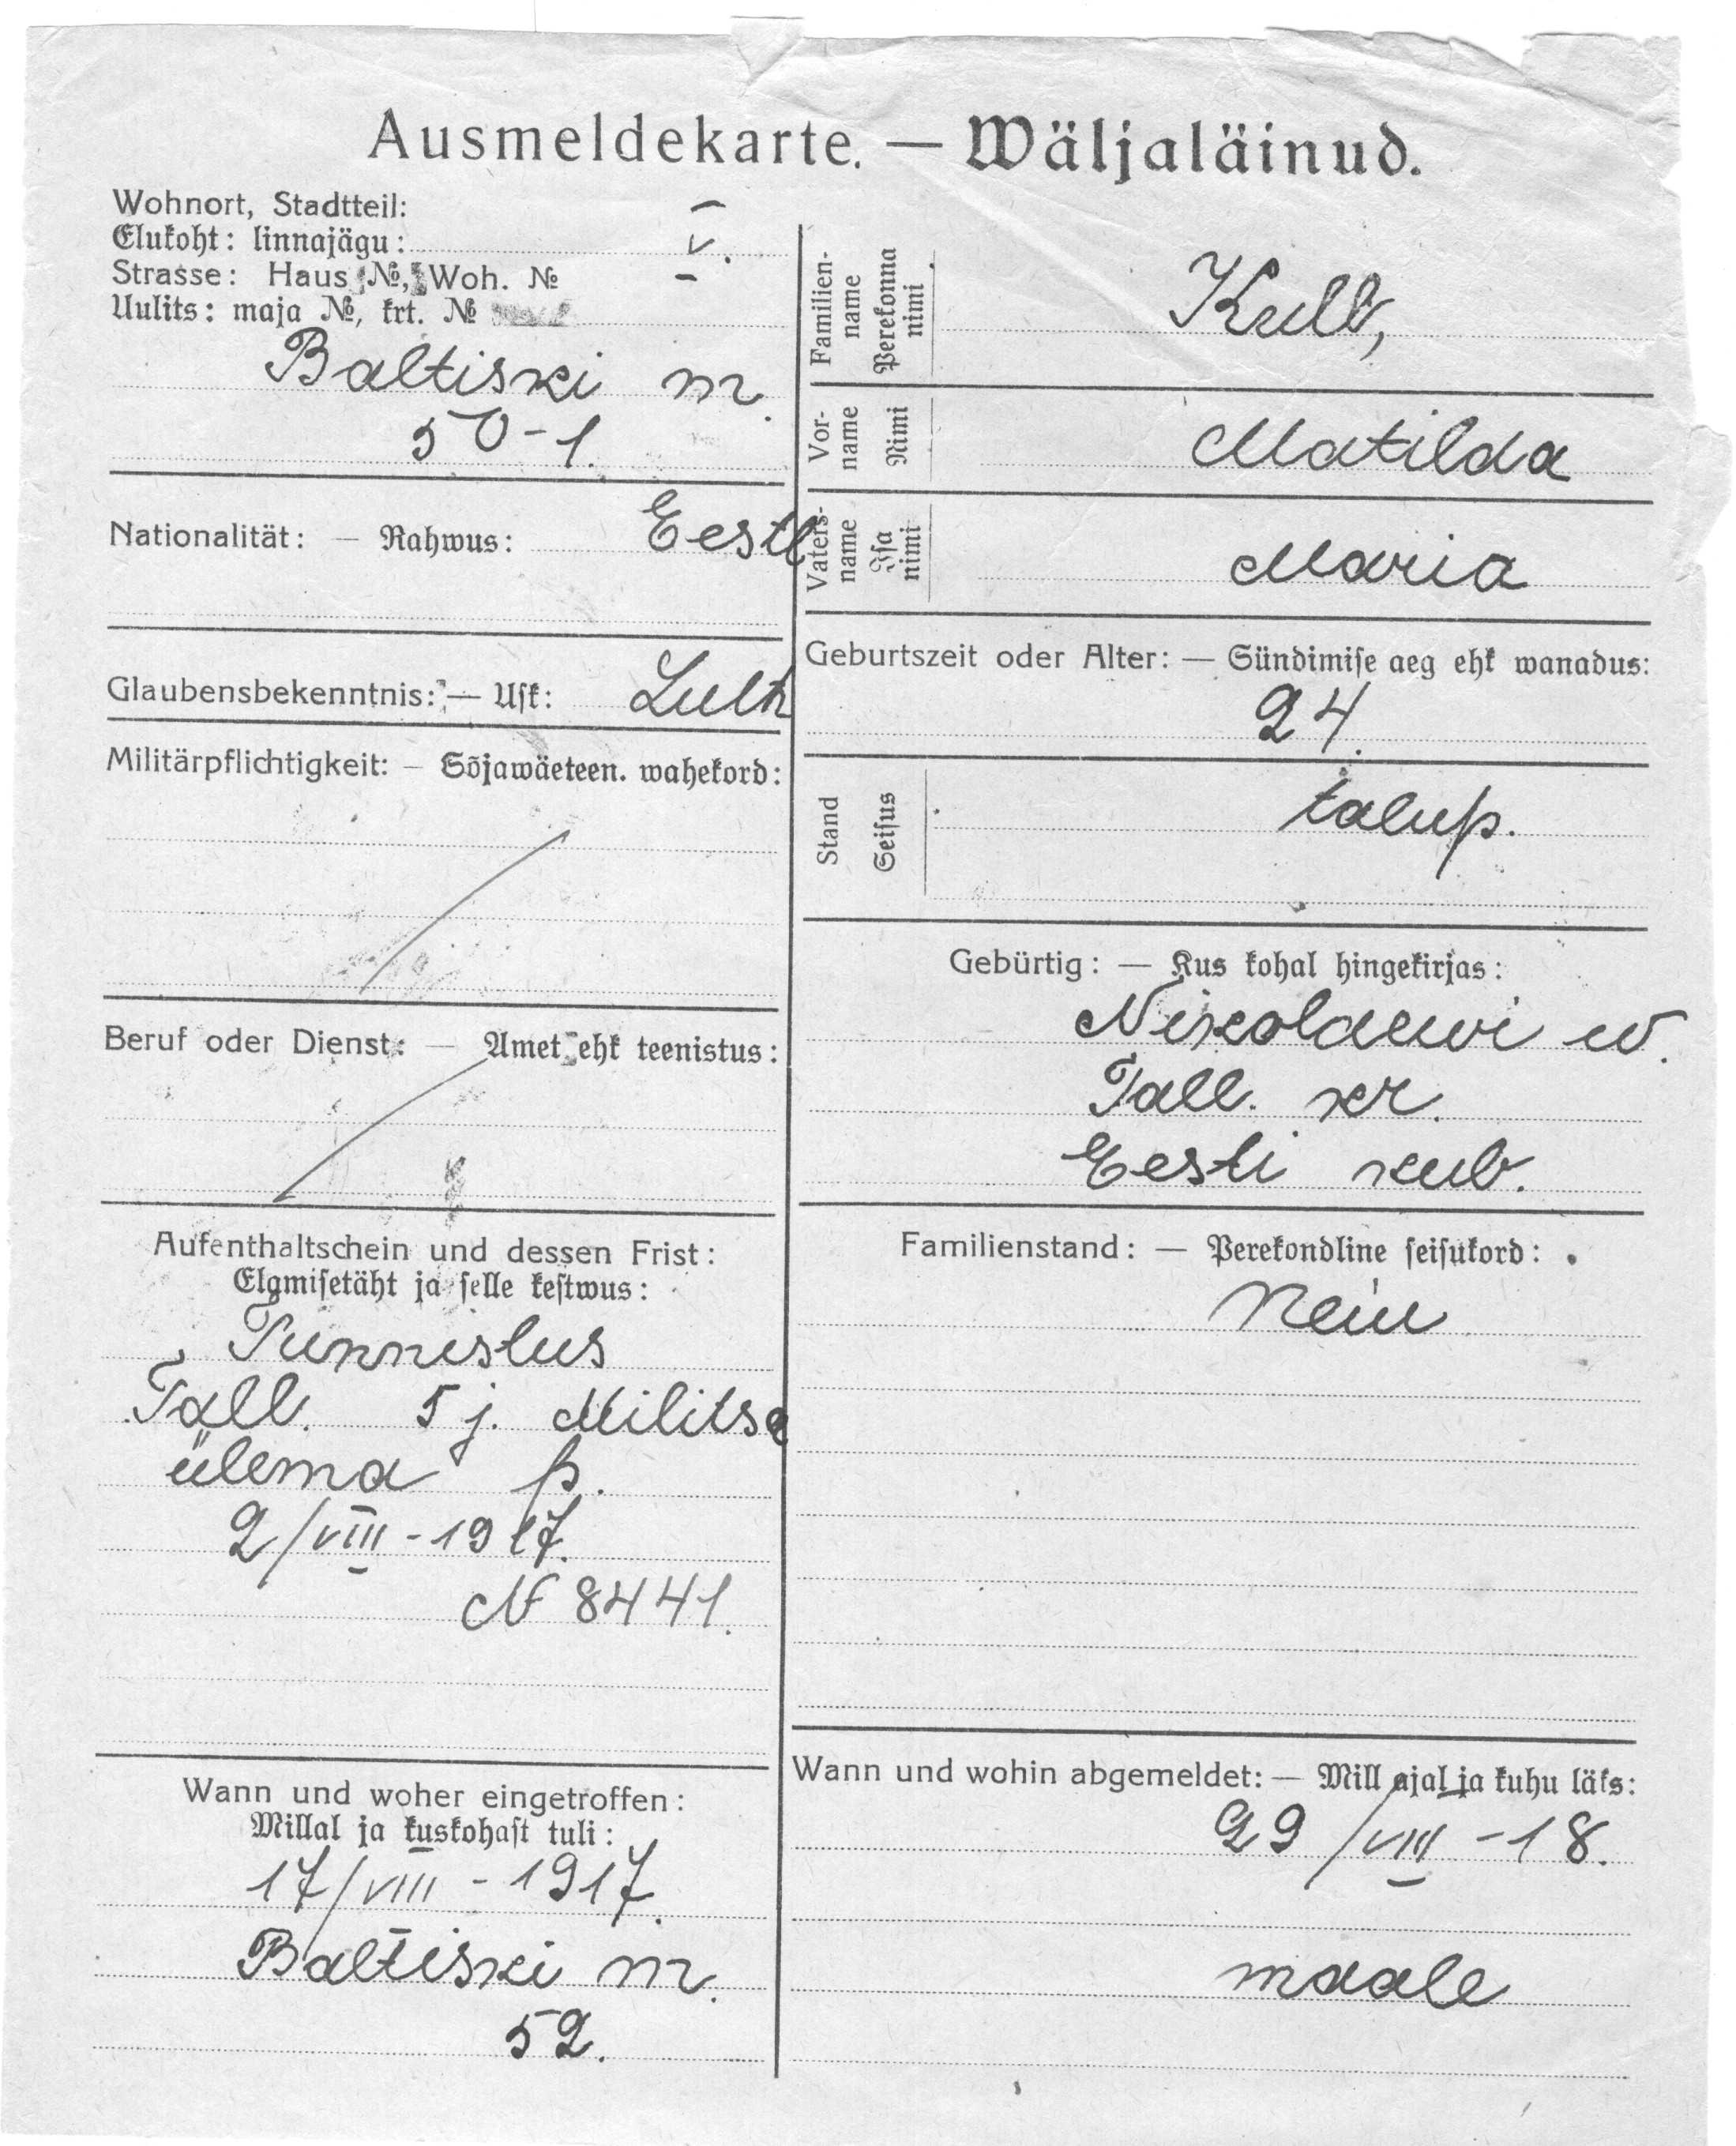 Ausmeldekarte. — Wäljaläinud.
Wohnort, Stadtteil:
Elukoht: linnajägu: V.
Strasse: Haus №, Woh. №
Uulits: maja №, krt. №
Baltiski m.
50-1.
Nationalität: — Rahwus: Eestl
Glaubensbekenntnis: — Usk: Luth
Militärpflichtigkeit: — Sõjawäeteen. wahekord:
Beruf oder Dienst: — Amet ehk teenistus:
Aufenthaltschein und dessen Frist:
Elamisetäht ja selle kestwus:
Tunnistus
Tall. 5 j. Militse
ülema p.
2/VIII - 1917.
N 8441.
Wann und woher eingetroffen:
Millal ja kuskohast tuli:
17/VIII - 1917.
Baltiski m.
52.
Familien-
name
Perekonna
nimi
Kull,
Vor-
name
Nimi
Matilda
Vaters-
name
Isa
nimi
Maria
Geburtszeit oder Alter: — Sündimise aeg ehk wanadus:
24.
Stand
Seisus
talup.
Gebürtig: — Kus kohal hingekirjas:
Nikolaewi w.
Tall. kr.
Eesti kub.
Familienstand: — Perekondline seisukord:
Neiu
Wann und wohin abgemeldet: — Mill ajal ja kuhu läks:
29/VIII - 18.
maale